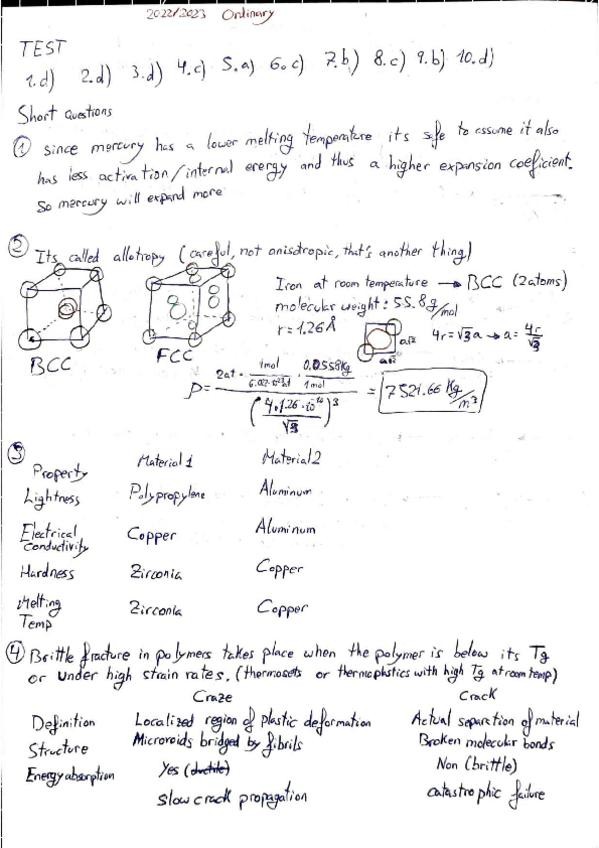 2022/2023 Ordinary
TEST
1.d) 2.d) 3.d) 4.c) 5.a) 6.c) 7.b) 8.c) 9.b) 10.d)
Short Questions
① since mercury has a lower melting temperature its safe to assume it also
has less activation/internal energy and thus a higher expansion coeficient.
So mercury will expand more
② Its called allotropy (careful, not anisotropic, that's another thing)
Iron at room temperature → BCC (2 atoms)
molecular weight: 55.8 g/mol
r = 1.26 Å
4r = √3 a → a = 4r/√3
BCC
FCC
ρ = (2at · 1mol/6.022·10²³at · 0.0558Kg/1mol) / (4·1.26·10⁻¹⁰/√3)³ = 7521.66 Kg/m³
③
Property Material 1 Material 2
Lightness Polypropylene Aluminum
Electrical conductivity Copper Aluminum
Hardness Zirconia Copper
Melting Temp Zirconia Copper
④ Brittle fracture in polymers takes place when the polymer is below its Tg
or under high strain rates. (thermosets or thermoplastics with high Tg at room temp)
Craze Crack
Definition Localized region of plastic deformation Actual separation of material
Structure Microvoids bridged by fibrils Broken molecular bonds
Energy absorption Yes (ductile) Non (brittle)
slow crack propagation catastrophic failure